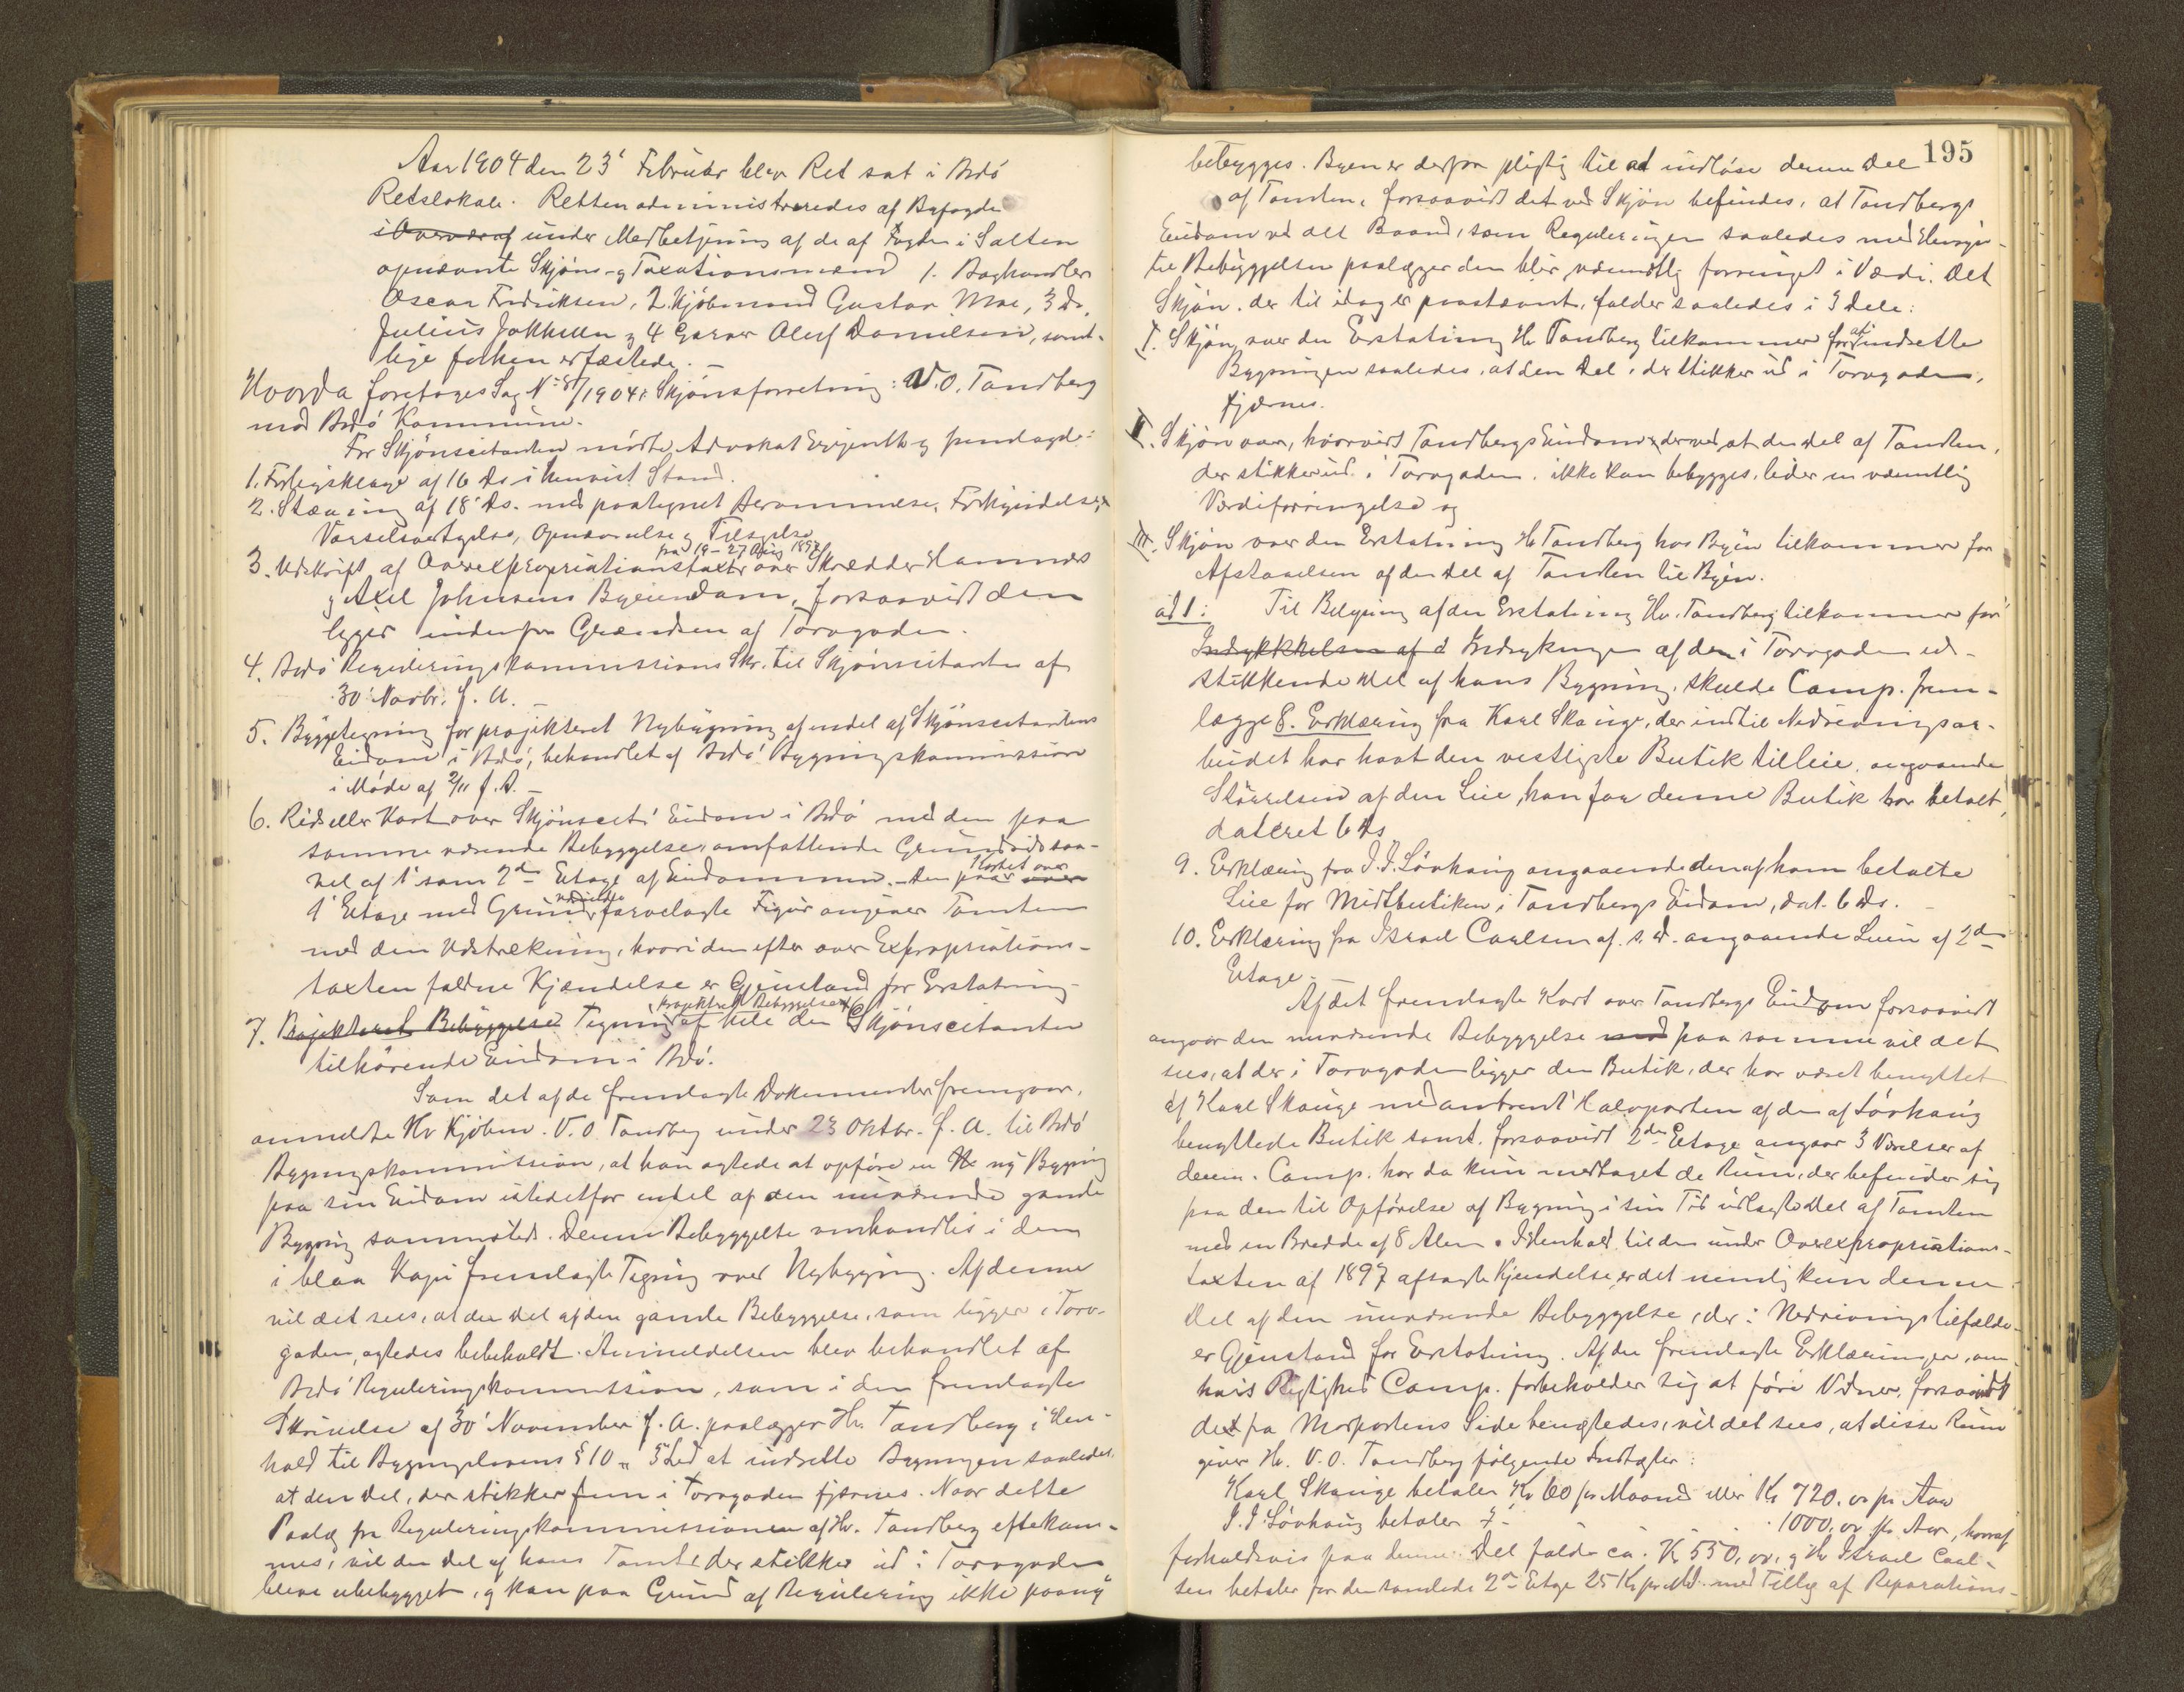 Aar 1904 den 23' Februar blev Ret sat i Bodö
Retslokale. Retten administreredes af Byfogden
i Overvær af under Medbetjening af de af Fogden i Salten
opnævnte Skjöns- og Taxationsmænd 1. Baghandler
Oscar Fredriksen, 2. Kjöbmand Gustav Moe, 3 Do.
Julius Jakhelln og 4 Garver Oluf Danielsen, samt-
lige forhen edfæstede. —
Hvorda foretoges Sag No 8/1904: Skjönsforretning: V. O. Tandberg
mod Bodö Kommune.
For Skjönscitanten mödte Advokat og fremlagde:
1. Forligsklage af 16 Ds. i henvist Stand.
2. Stævning af 18' Ds. med paategnet Berammelse, Forkyndelse,
Varselsvedtagelse, Opnævnelse og Tilsigelse
3. Udskrift af Overexpropriationstaxt fra 19-27 Aug 1897 over Skrædder Hamnes
og Axel Johnsens Byeiendom, forsaavidt den
ligger indenfor Grændsen af Torvgaden.
4. Bodö Reguleringskommissions Skr. til Skjönscitanten af
30' Novbr. f. A. —
5. Byggetegning for projekteret Nybygning af endel af Skjönscitantens
Eiendom i Bodö, behandlet af Bodö Bygningskommission
i Möde af 2/11 f. A. —
6. Rids eller Kart over Skjönscit's Eiendom i Bodö med den paa
samme værende Bebyggelse, omfattende Grundrids saa-
vel af 1' som 2den Etage af Eiendommen. — Den paa Kartet over
1' Etage med Grund farvelagte Figur angiver Tomten
med den Udstrækning, hvori den efter over Expropriations-
taxten faldne Kjendelse er Gjenstand for Erstatning
7. Projekteret Bebyggelse Tegning projekteret Bebyggelse af hele den Skjönscitanten
tilhörende Eiendom i Bodö.
Som det af de fremlagte Dokumenter fremgaar,
anmeldte Hr Kjöbm. V. O. Tandberg under 23 Oktbr. f. A. til Bodö
Bygningskommission, at han agtede at opföre en ny Bygning
paa sin Eiendom istedetfor endel af den nuværende gamle
Bygning sammesteds. Denne Bebyggelse omhandles i den
i blaa Kopi fremlagte Tegning over Nybygning. Af denne
vil det sees, at den Del af den gamle Bebyggelse, som ligger i Torv-
gaden, agtedes bibeholdt. Anmeldelsen blev behandlet af
Bodö Reguleringskommission, som i den fremlagte
Skrivelse af 30' November f. A. paalægger Hr. Tandberg i Hen-
hold til Bygningslovens § 10, 5 Led at indrette Bygningen saaledes
at den Del, der stikker frem i Torvgaden fjernes. Naar dette
Paalæg fra Reguleringskommissionen af Hr. Tandberg efterkom-
mes, vil den Del af hans Tomt, der stikker ud i Torvgaden
blive ubebygget, og kan paa Grund af Regulering ikke paany
195
bebygges. Byen er derfor pligtig til at indlöse denne Del
af Tomten, forsaavidt det ved Skjön befindes, at Tandbergs
Eiendom ved det Baand, som Reguleringen saaledes med Hensyn
til Bebyggelsen paalægger den blir væsentlig forringet i Værdi. Det
Skjön, der til idag er paastævnt, falder saaledes i 3 Dele:
I. Skjön over den Erstatning Hr Tandberg tilkommer for at indrette
Bygningen saaledes, at den Del, der stikker ud i Torvgaden,
fjernes.
II. Skjön over, hvorvidt Tandbergs Eiendom derved at den Del af Tomten,
der stikker ud i Torvgaden, ikke kan bebygges, lider en væsentlig
Værdiforringelse og
III. Skjön over den Erstatning Hr Tandberg hos Byen tilkommer for
Afstaaelsen af den Del af Tomten til Byen.
ad I: Til Belysning af den Erstatning Hr. Tandberg tilkommer for
Indrykkelsen af d Indrykningen af den i Torvgaden ud-
stikkende Del af hans Bygning, skulde Comp. frem-
lægge 8. Erklæring fra Karl Skauge, der indtil Nedrivningsar-
beidet har havt den vestligste Butik tilleie, angaaende
Störrelsen af den Leie, han for denne Butik har betalt,
dateret 6 Ds
9. Erklæring fra J. J. Lövhaug angaaende den af ham betalte
Leie for Midtbutiken i Tandbergs Eiendom, dat. 6 Ds. —
10. Erklæring fra Israel Carlsen af s. d. angaaende Leien af 2den
Etage. —
Af det fremlagte Kart over Tandbergs Eiendom forsaavidt
angaar den nuværende Bebyggelse med paa samme vil det
sees, at der i Torvgaden ligger den Butik, der har været benyttet
af Karl Skauge med omtrent Halvparten af den af Lövhaug
benyttede Butik samt, forsaavidt 2den Etage angaar 3 Værelser af
denne. Comp. har da kun medtaget de Rum, der befinder sig
paa den til Opförelse af Bygning i sin Tid udlagte Del af Tomten
med en Bredde af 8 Alen. I Henhold til den under Overexpropriations-
taxten af 1897 afsagte Kjendelse, er det nemlig kun denne
Del af den nuværende Bebyggelse, der i Nedrivningstilfælde
er Gjenstand for Erstatning. Af de fremlagte Erklæringer, om
hvis Rigtighed Comp. forbeholder sig at före Vidner, forsaavidt
det fra Modpartens Side benegtedes, vil det sees, at disse Rum
giver Hr. V. O. Tandberg fölgende Indtægter:
Karl Skauge betaler Kr 60 pr Maaned eller Kr 720. oo pr Aar
J. J. Lövhaug betaler 1000. oo pr Aar, hvoraf
forholdsvis paa denne Del falder ca. Kr 550, oo, og Hr Israel Carl-
sen betaler for den samlede 2den Etage 25 Kr pr Md. med Tillæg af Reparations-